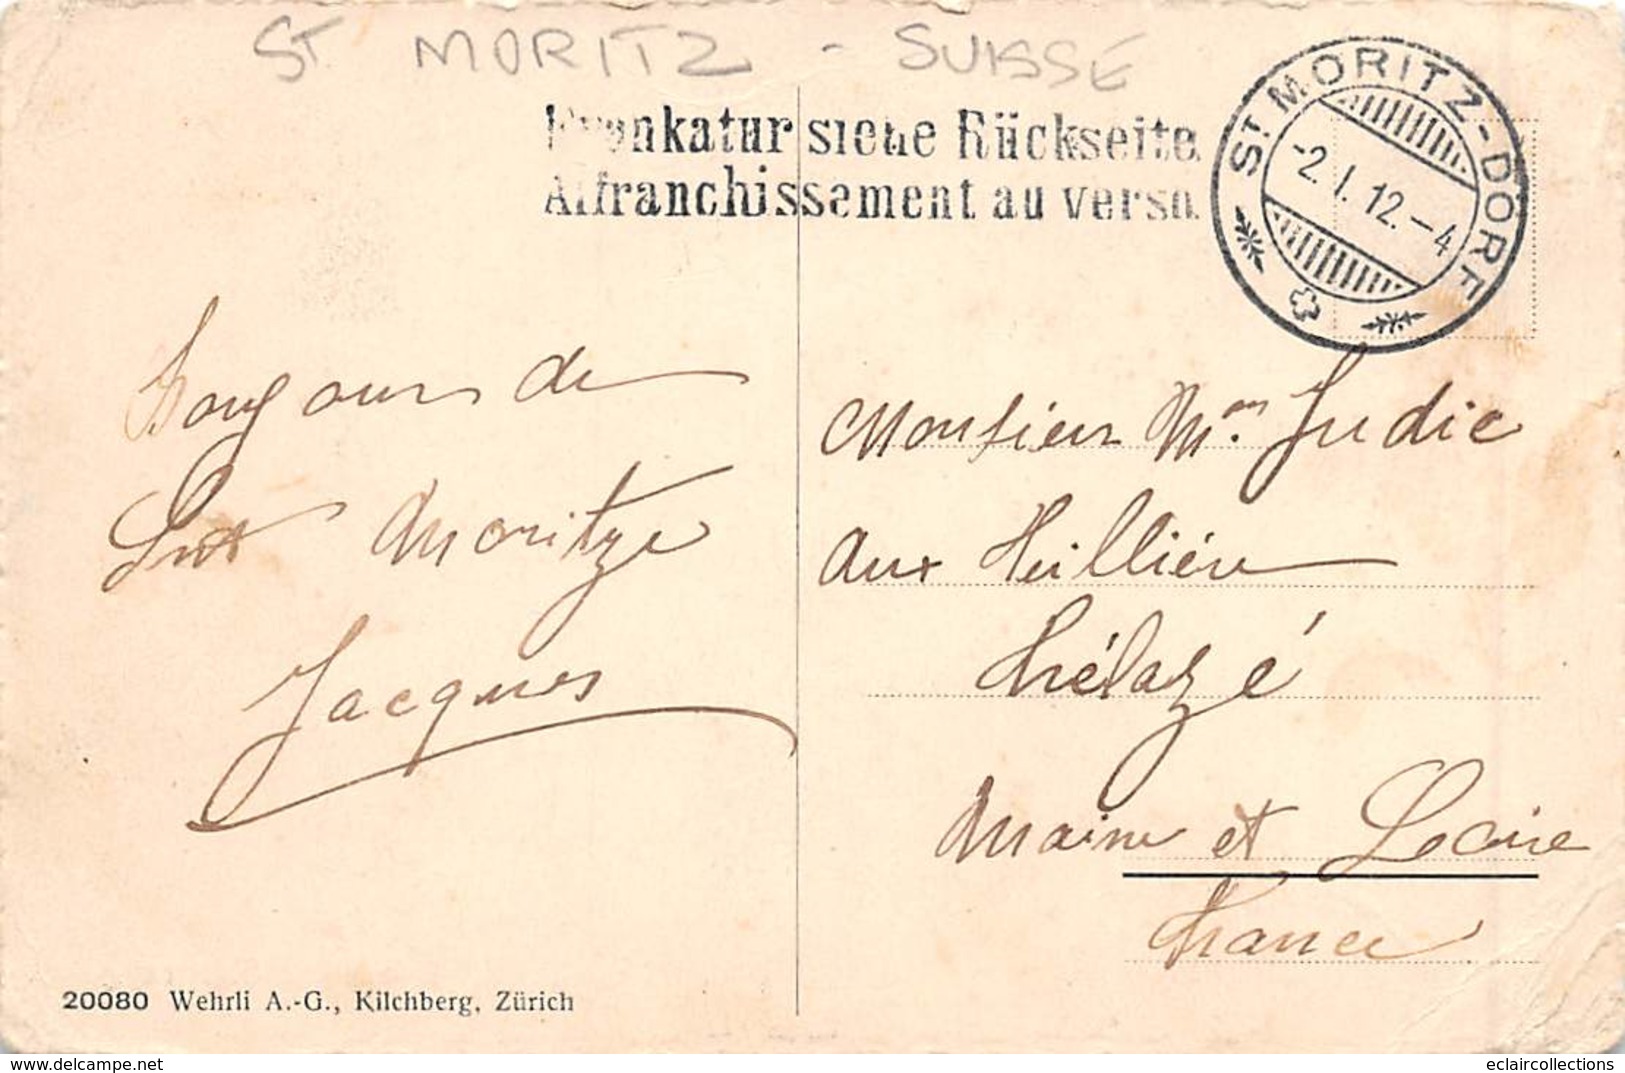 ST MORITZ - SUISSE
Frankatur siehe Rückseite.
Affranchissement au verso.
ST MORITZ-DORF
-2.I.12.-4
Bonjour de
Snt Moritze
Jacques
Monsieur Judic
aux
Trélazé
Maine et Loire
France
20080 Wehrli A.-G., Kilchberg, Zürich
delcampe.net
eclaircollections